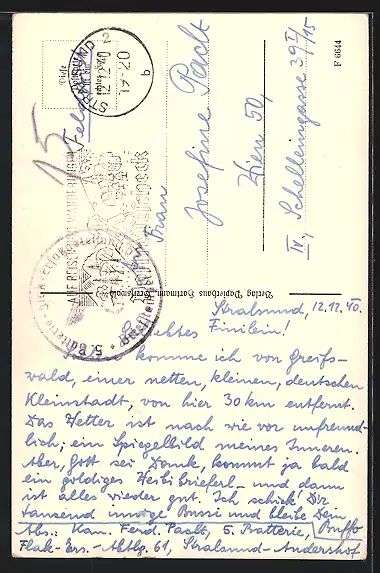 STRALSUND 2
12.12.40
19-20
b
Feldpost
15
F 6644
Frau
Josefine Pacht
Wien 50,
IV, Schelleingasse 39 I/15
Verlag Papierhaus Hartmann
5. Batterie
Stralsund, 12.12.40.
Liebstes Finilein!
komme ich von Greifs-
wald, einer netten, kleinen, deutschen
Kleinstadt, von hier 30 km entfernt.
Das Wetter ist nach wie vor unfreund-
lich; ein Spiegelbild meines Inneren.
Aber, Gott sei Dank, kommt ja bald
ein goldiges Herzibrieferl - und dann
ist alles wieder gut! Ich schick' Dir
tausend innige Bussi und bleibe Dein
Abs.: Kan. Ferd. Pacht, 5. Batterie,
Flak-Ers.-Abtlg. 61, Stralsund-Andershof